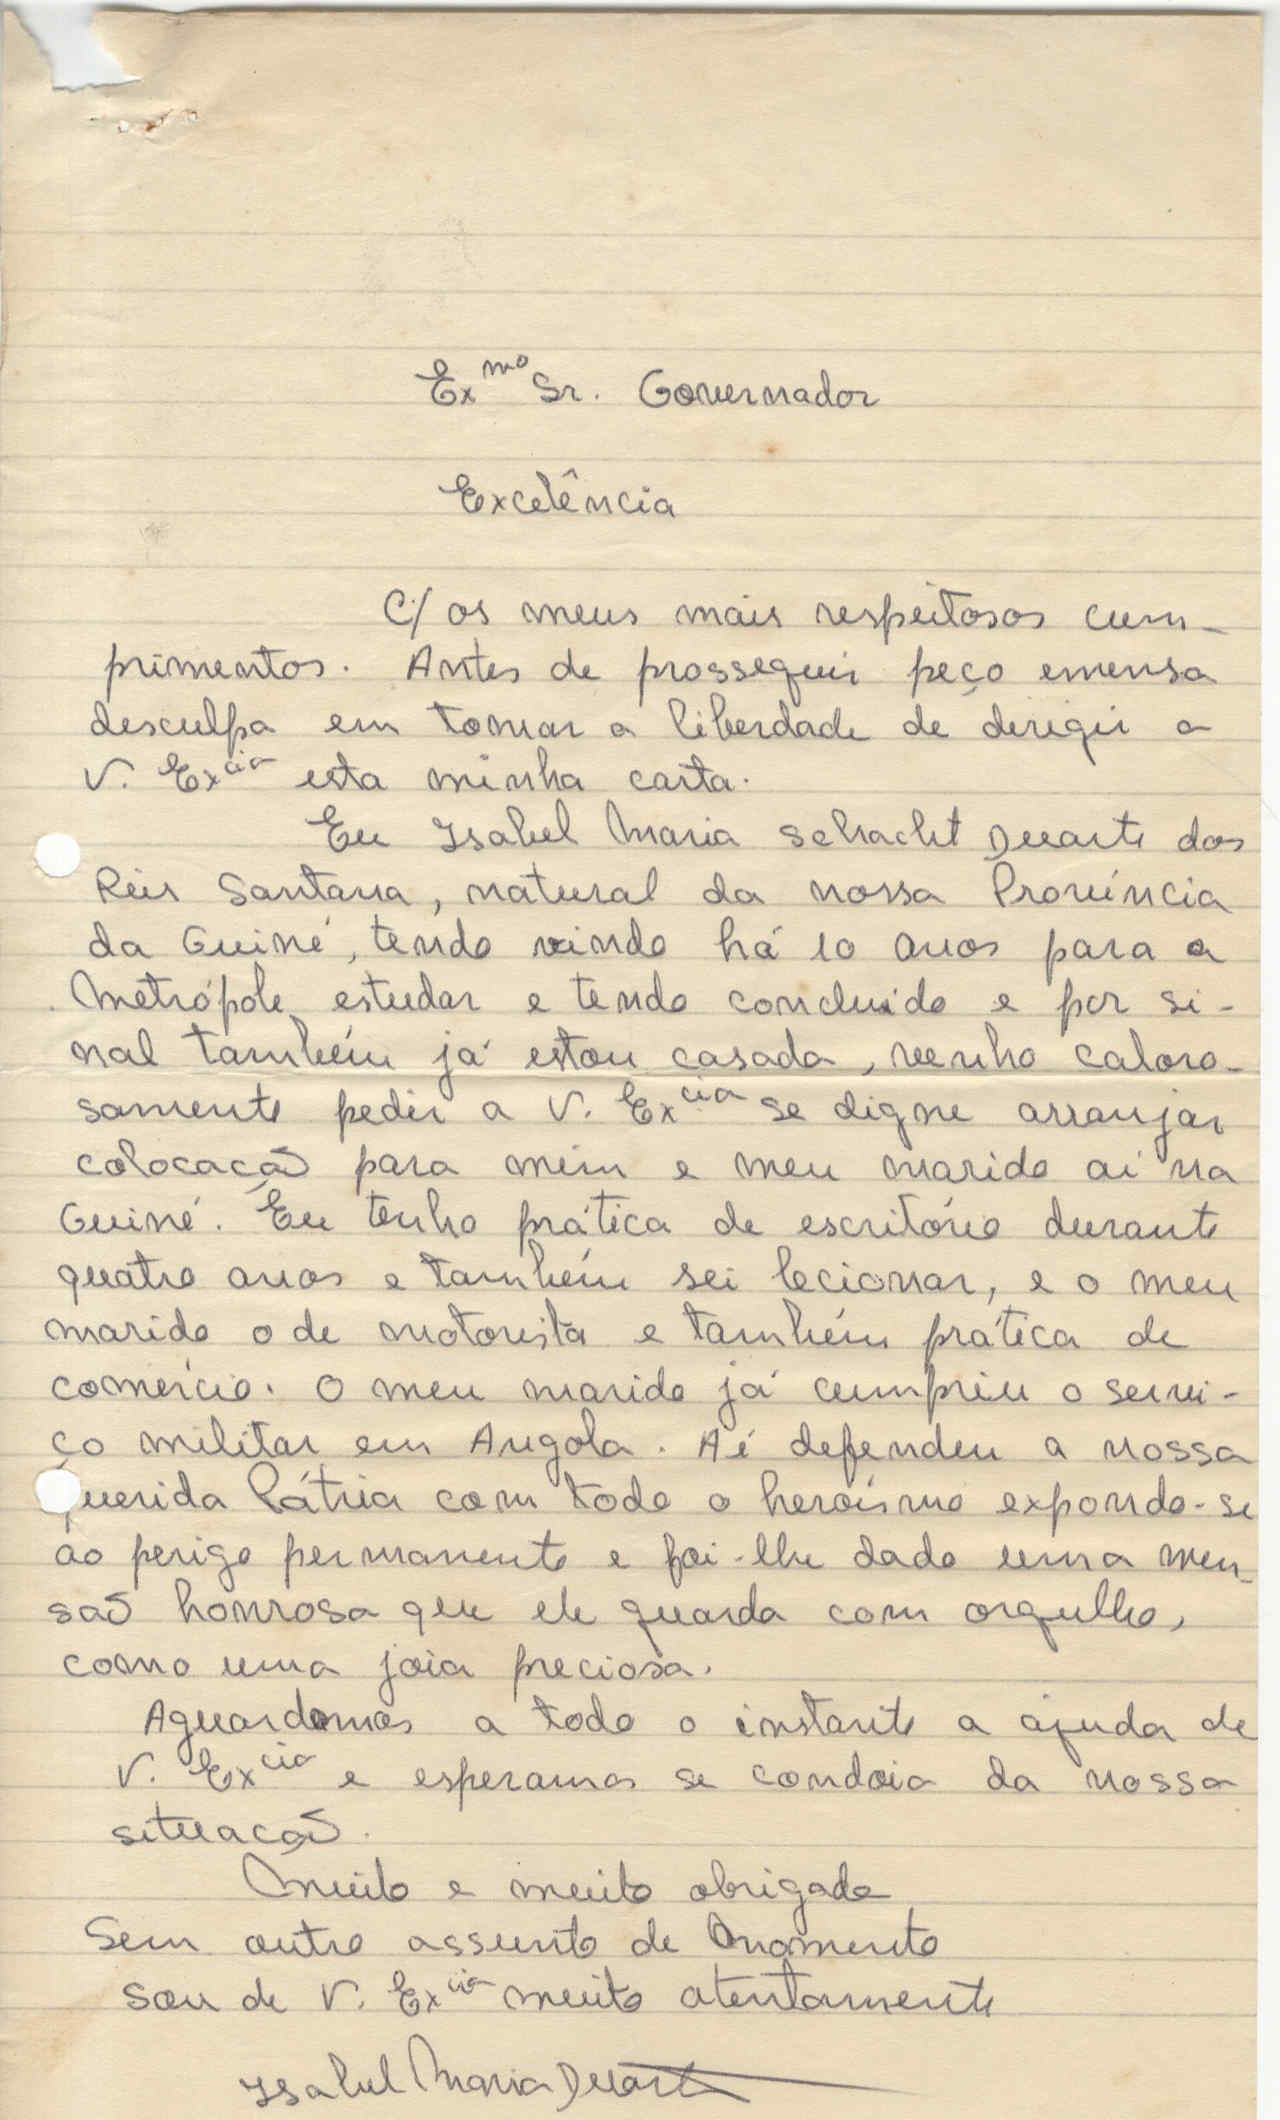 Exmo Sr. Governador
Excelência
C/ os meus mais respeitosos cum-
primentos. Antes de prosseguir peço emensa
desculpa em tomar a liberdade de derigir a
V. Excia esta minha carta.
Eu Isabel Maria Schacht Duarte dos
Reis Santana, natural da nossa Província
da Guiné, tendo vindo há 10 anos para a
Metrópole estudar e tendo concluido e por si-
nal também já estou casada, venho caloro-
samente pedir a V. Excia se digne arranjar
colocação para mim e meu marido aí na
Guiné. Eu tenho prática de escritório durante
quatro anos e também sei lecionar, e o meu
marido o de motorista e também prática de
comércio. O meu marido já cumpriu o servi-
ço militar em Angola. Aí defendeu a nossa
querida Pátria com todo o heroísmo expondo-se
ao perigo permanente e foi-lhe dado uma men-
são honrosa que ele guarda com orgulho,
como uma joia preciosa.
Aguardamos a todo o instante a ajuda de
V. Excia e esperamos se condoia da nossa
situação.
Muito e muito obrigado
Sem outro assunto de momento
sou de V. Excia muito atentamente
Isabel Maria Duarte